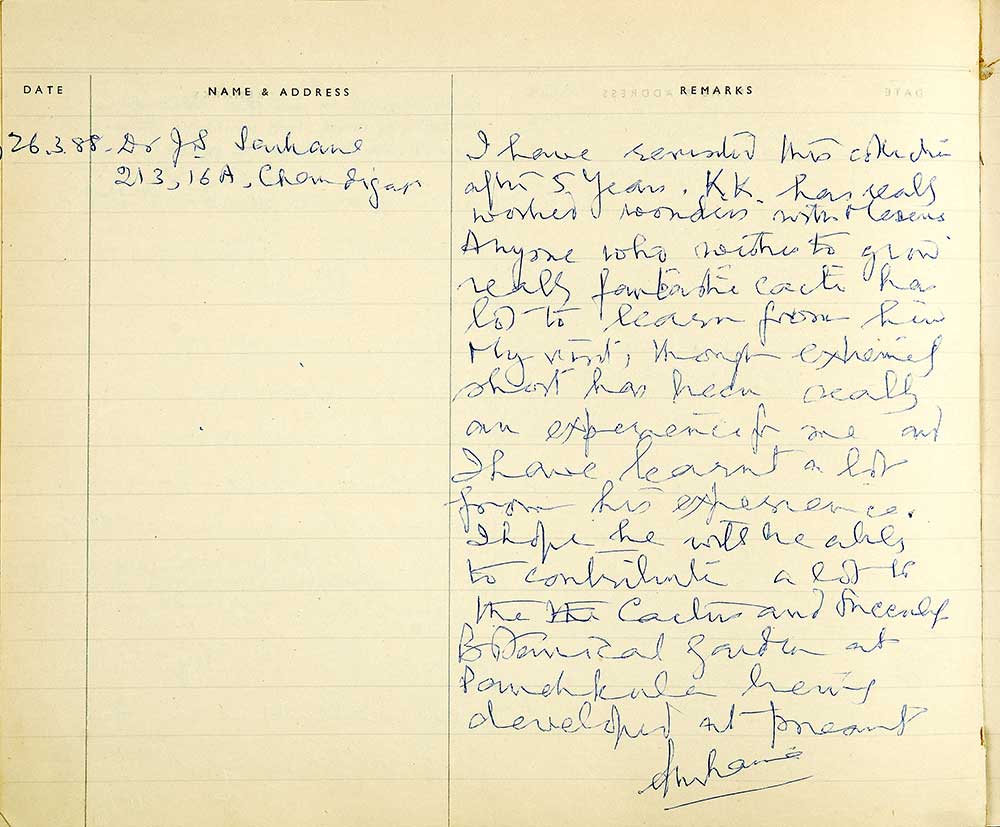 DATE NAME & ADDRESS REMARKS
26.3.88. Dr JS Sarkaria
213, 16A, Chandigarh
I have revisited this collection
after 5 Years. K.K. has really
worked wonders with
Anyone who wishes to grow
really fantastic cacti has
lot to learn from him
My visit, though extremely
short has been really
an experience for me and
I have learnt a lot
from his experience.
I hope he will be able
to contribute a lot to
the the Cactus and Succulent
Botanical Garden at
Panchkula being
developed at present